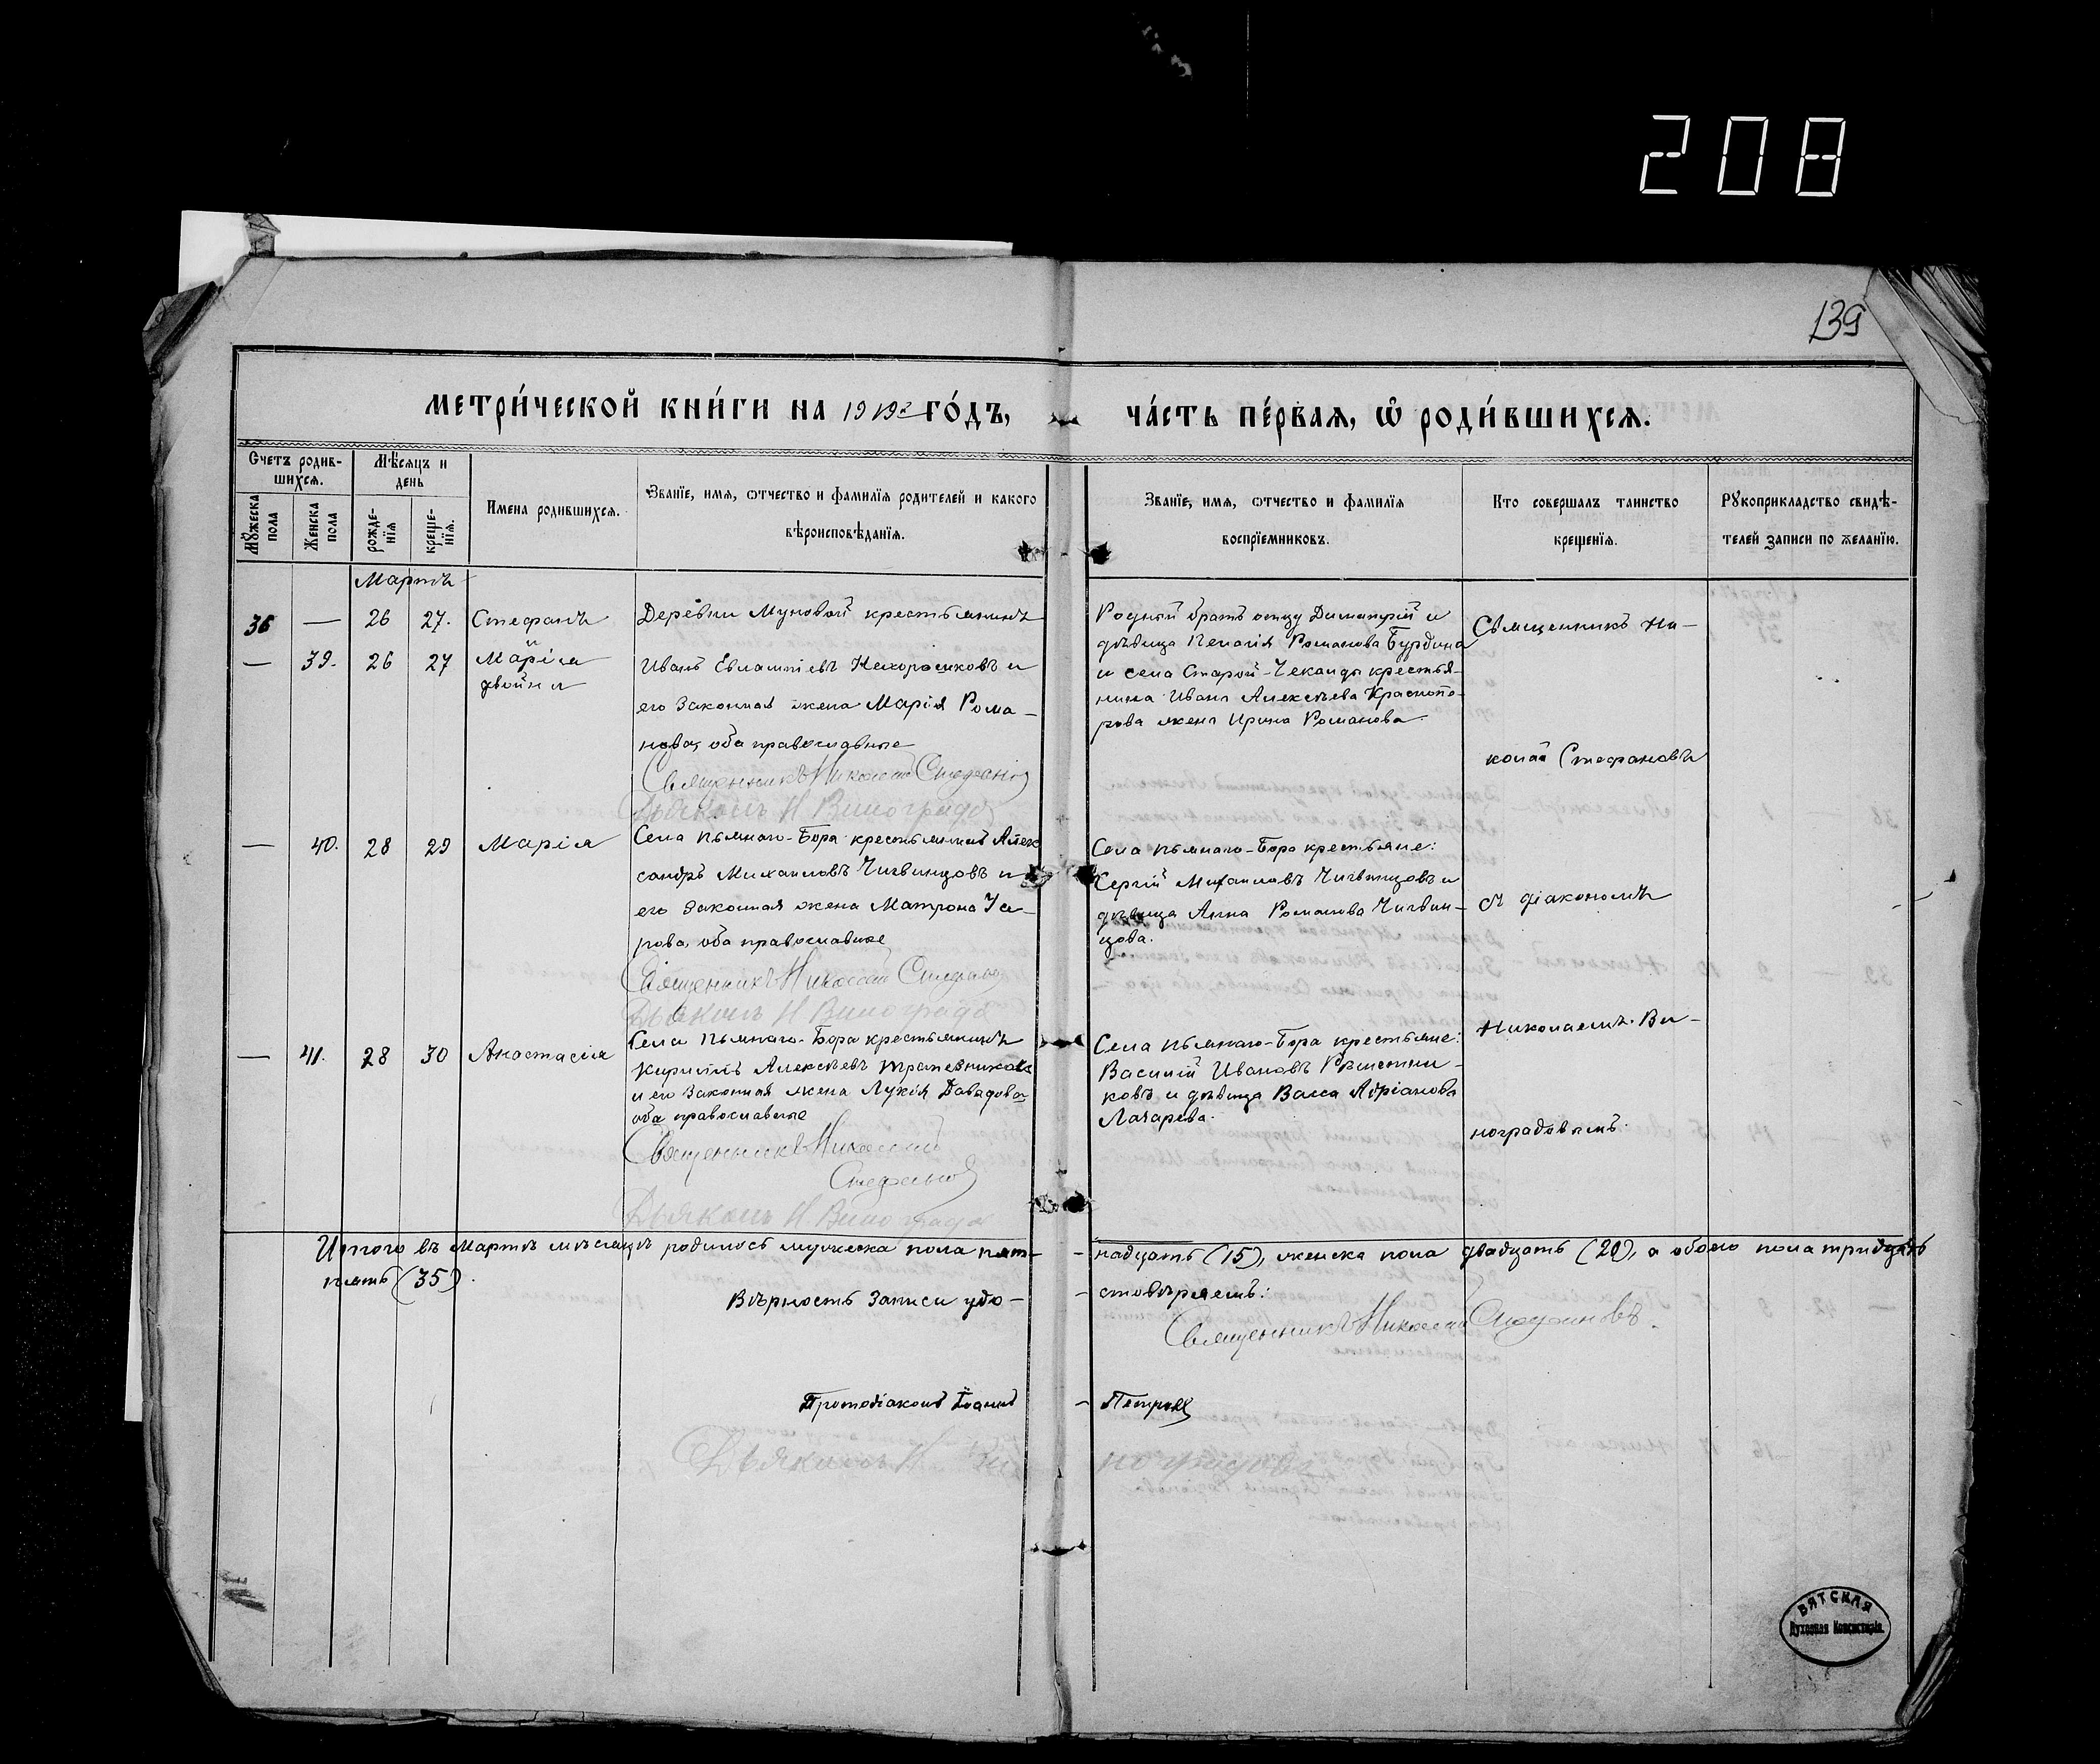 208
139
МЕТРИ́ЧЕСКОЙ КНИ́ГИ НА 1919й ГО́ДЪ,
ЧА́СТЬ ПЕ́РВАЯ, Ѡ РОДИ́ВШИХСЯ.
Счетъ родив-
шихся.
Мѣсяцъ и
день
Мужеска
пола
Женска
пола
рожде-
нія
креще-
нія.
Имена родившихся.
Званіе, имя, отчество и фамилія родителей и какого
вѣроисповѣданія.
Званіе, имя, отчество и фамилія
воспріемниковъ.
Кто совершалъ таинство
крещенія.
Рукоприкладство свидѣ-
телей записи по желанію.
Мартъ
36 — 26 27. Стефанъ
и
— 39. 26 27 Марія
двойни
Деревни Муновой крестьянинъ
Иванъ Евлампіевъ и
его законная жена Марія Рома-
нова, оба православные
Священникъ Николай Стефановъ
Дьяконъ Н Виноградов
Родной братъ отцу Димитрій и
дѣвица Пелагія Романова Бурдина
и села Старой-Чекалды крестья-
нина Ивана Алексѣева Краснопе-
рова жена Ирина Романова.
Священникъ Ни-
колай Стефановъ
— 40. 28 29 Марія
Села Пьянаго-Бора крестьянинъ Алек
сандръ Михаиловъ Чигвинцовъ и
его законная жена Матрона Уа-
рова, оба православные
Священникъ Николай Стефановъ
Дьяконъ Н Виноградов
Села Пьянаго-Бора крестьяне:
Сергій Михаиловъ Чигвинцовъ и
дѣвица Анна Романова Чигвин-
цова.
съ діакономъ
— 41. 28 30 Анастасія
Села Пьянаго-Бора крестьянинъ
Кириллъ Алексѣевъ Трапезниковъ
и его законная жена Лукія Давидова
оба православные
Священникъ Николай
Стефановъ
Дьяконъ Н. Виноградов
Села Пьянаго-Бора крестьяне:
Василій Ивановъ
ковъ и дѣвица Васса Адріанова
Лазарева.
Николаемъ Ви-
ноградовымъ.
Итого въ Мартѣ мѣсяцѣ родилось мужеска пола пят-
надцать (15), женска пола двадцать (20), а обоего пола тридцать
пять (35).
Вѣрность записи удо-
стовѣряемъ:
Священникъ Николай Стефановъ.
Протодіаконъ Іоаннъ
Петровъ
Дьяконъ Н Ви
ноградовъ
ВЯТСКАЯ
Духовная Консисторія.